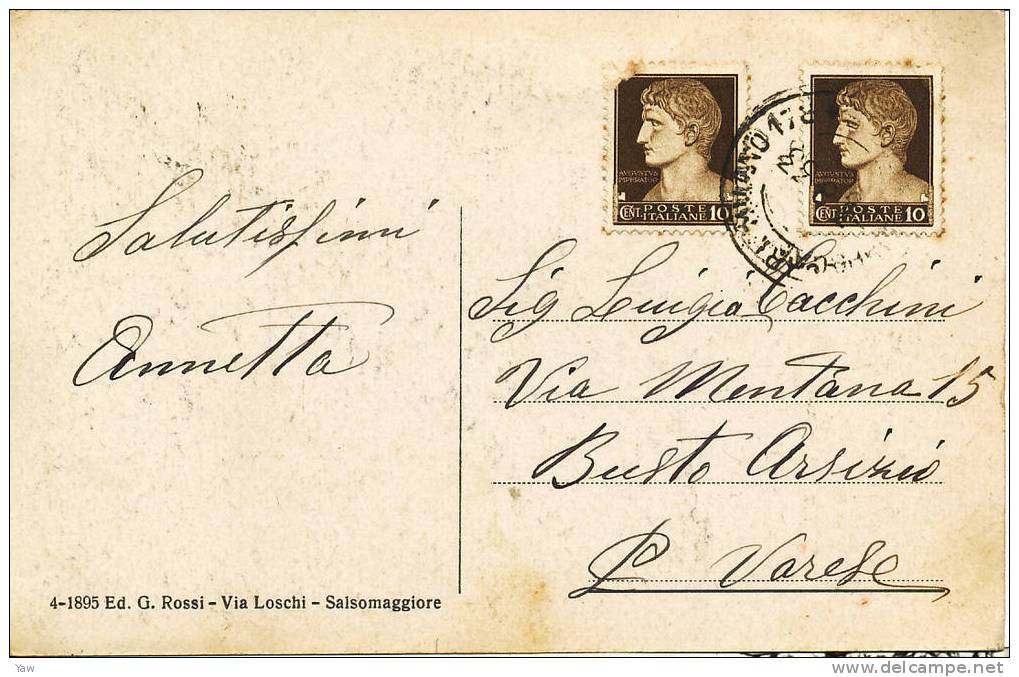 Salutissimi
Annetta
4-1895 Ed. G. Rossi - Via Loschi - Salsomaggiore
AVGVSTVS
IMPERATOR
CENT. POSTE ITALIANE 10
AVGVSTVS
IMPERATOR
CENT. POSTE ITALIANE 10
Sig Luigia Cacchini
Via Mentana 15
Busto Arsizio
P. Varese
Yaw
www.delcampe.net